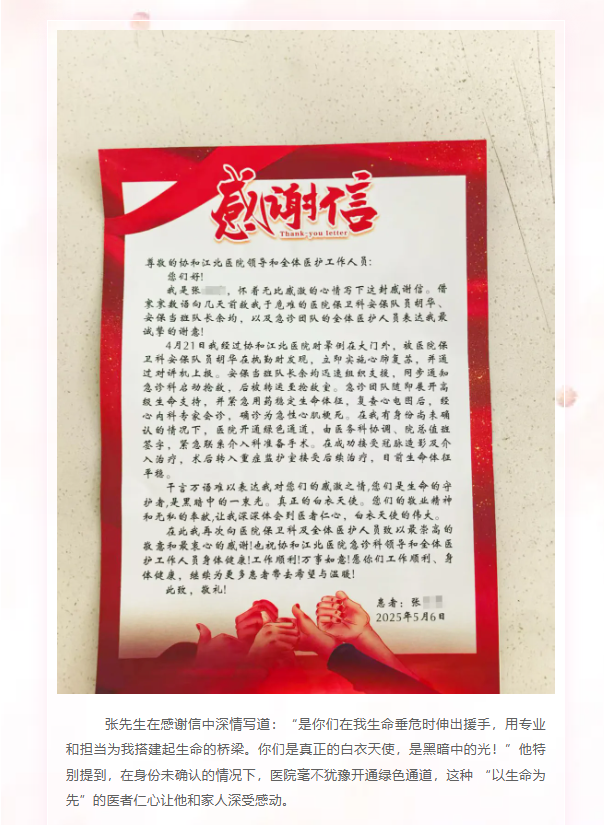 感谢信
Thank-you letter
尊敬的协和江北医院领导和全体医护工作人员:
您们好!
我是张 , 怀着无比感激的心情写下这封感谢信。借
寥寥数语向几天前救我于危难的医院保卫科安保队员胡华、
安保当班队长余均, 以及急诊团队的全体医护人员表达我最
诚挚的谢意!
4月21日我经过协和江北医院时晕倒在大门外, 被医院保
卫科安保队员胡华在执勤时发现, 立即实施心肺复苏, 并通
过对讲机上报。安保当班队长余均迅速组织支援, 同步通知
急诊科启动抢救, 后被转运至抢救室。急诊团队随即展开高
级生命支持, 并紧急用药稳定生命体征, 复查心电图后, 经
心内科专家会诊, 确诊为急性心肌梗死。在我有身份尚未确
认的情况下, 医院开通绿色通道, 由医务科协调、院总值班
签字, 紧急联系介入科准备手术。在成功接受冠脉造影及介
入治疗, 术后转入重症监护室接受后续治疗, 目前生命体征
平稳。
千言万语难以表达我对您们的感激之情,您们是生命的守
护者,是黑暗中的一束光。真正的白衣天使。您们的敬业精神
和无私的奉献,让我深深体会到医者仁心, 白衣天使的伟大。
在此我再次向医院保卫科及全体医护人员致以最崇高的
敬意和最衷心的感谢!也祝协和江北医院急诊科领导和全体医
护工作人员身体健康!工作顺利!万事如意!愿你们工作顺利、身
体健康, 继续为更多患者带去希望与温暖!
此致, 敬礼!
患者: 张
2025年5月6日
张先生在感谢信中深情写道：“是你们在我生命垂危时伸出援手，用专业
和担当为我搭建起生命的桥梁。你们是真正的白衣天使，是黑暗中的光！”他特
别提到，在身份未确认的情况下，医院毫不犹豫开通绿色通道，这种 “以生命为
先”的医者仁心让他和家人深受感动。